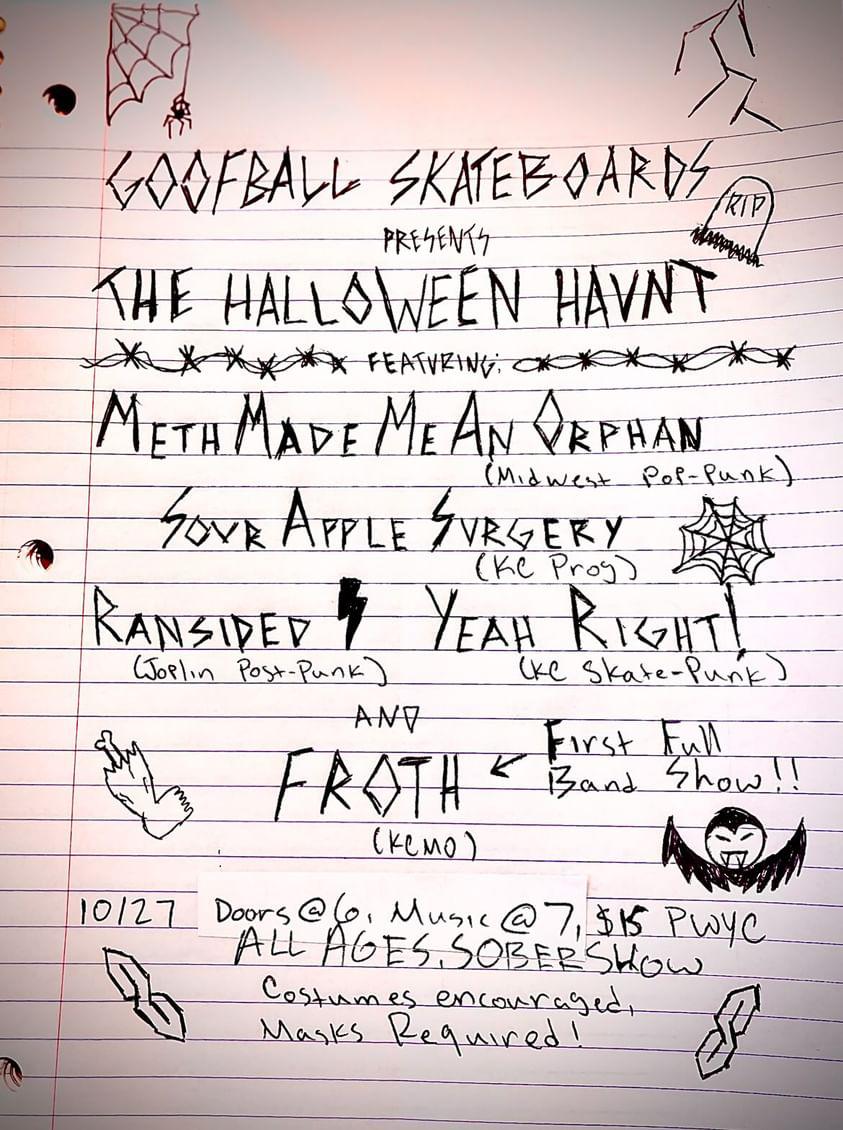 RIP
GOOFBALL SKATEBOARDS
PRESENTS
THE HALLOWEEN HAVNT
FEATVRING:
METH MADE ME AN ORPHAN
(Midwest Pop-Punk)
SOVR APPLE SVRGERY
(KC Prog)
RANSIDED YEAH RIGHT!
(Joplin Post-Punk) (KC Skate-Punk)
AND
FROTH ← First Full
Band Show!!
(KCMO)
10/27 Doors @ 6, Music @ 7, $15 PWYC
ALL AGES, SOBER SHOW
Costumes encouraged,
Masks Required!